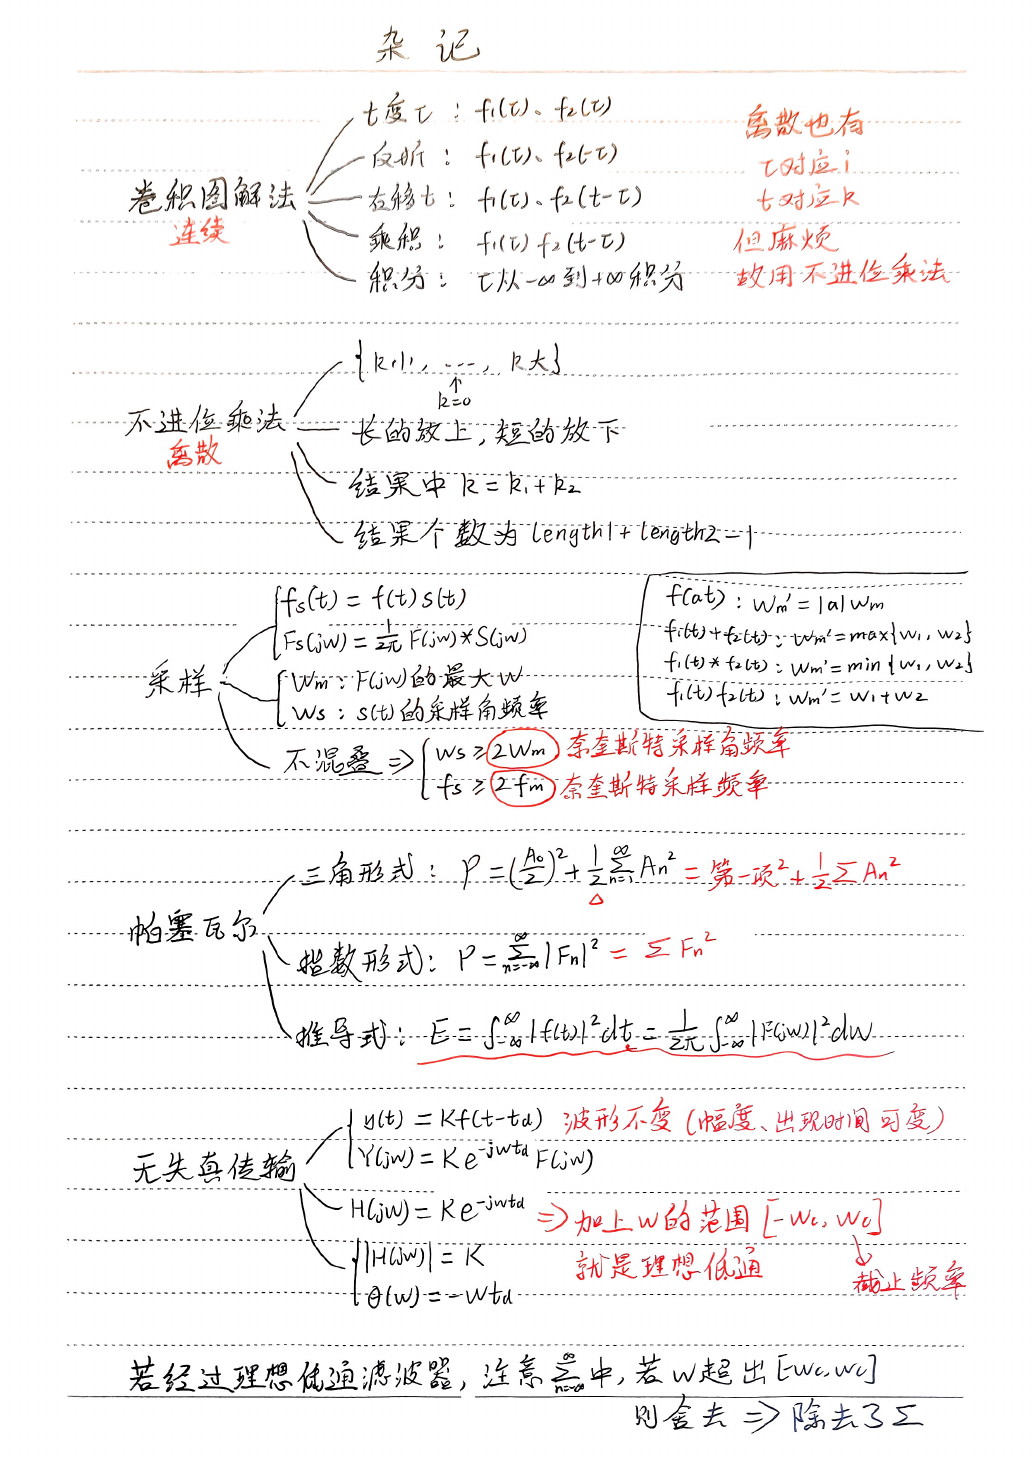 杂记
t变τ：f₁(τ)、f₂(τ)
反折：f₁(τ)、f₂(-τ)
卷积图解法
连续
右移t：f₁(τ)、f₂(t-τ)
乘积：f₁(τ)f₂(t-τ)
积分：τ从-∞到+∞积分
离散也有
τ对应i
t对应k
但麻烦
故用不进位乘法
{k小, ..., k大}
↑
k=0
不进位乘法
离散
长的放上,短的放下
结果中k=k₁+k₂
结果个数为length1+length2-1
采样
fs(t)=f(t)s(t)
Fs(jw)=1/2π F(jw)*S(jw)
Wm：F(jw)的最大W
Ws：s(t)的采样角频率
不混叠⇒
Ws≥2Wm 奈奎斯特采样角频率
fs≥2fm 奈奎斯特采样频率
f(at)：Wm'=|a|Wm
f₁(t)+f₂(t)：Wm'=max{W₁,W₂}
f₁(t)*f₂(t)：Wm'=min{W₁,W₂}
f₁(t)f₂(t)：Wm'=W₁+W₂
帕塞瓦尔
三角形式：P=(A₀/2)²+1/2 ∞Σn=1 An²=第一项²+1/2ΣAn²
△
指数形式：P=∞Σn=-∞|Fn|²=ΣFn²
推导式：E=∫-∞^∞|f(t)|²dt=1/2π∫-∞^∞|F(jw)|²dw
无失真传输
y(t)=Kf(t-td) 波形不变(幅度、出现时间可变)
Y(jw)=Ke^-jwtd F(jw)
H(jw)=Ke^-jwtd ⇒加上w的范围[-Wc,Wc]
就是理想低通
截止频率
|H(jw)|=K
θ(w)=-wtd
若经过理想低通滤波器,注意∞Σn=-∞中,若w超出[-Wc,Wc]
则舍去⇒除去了Σ